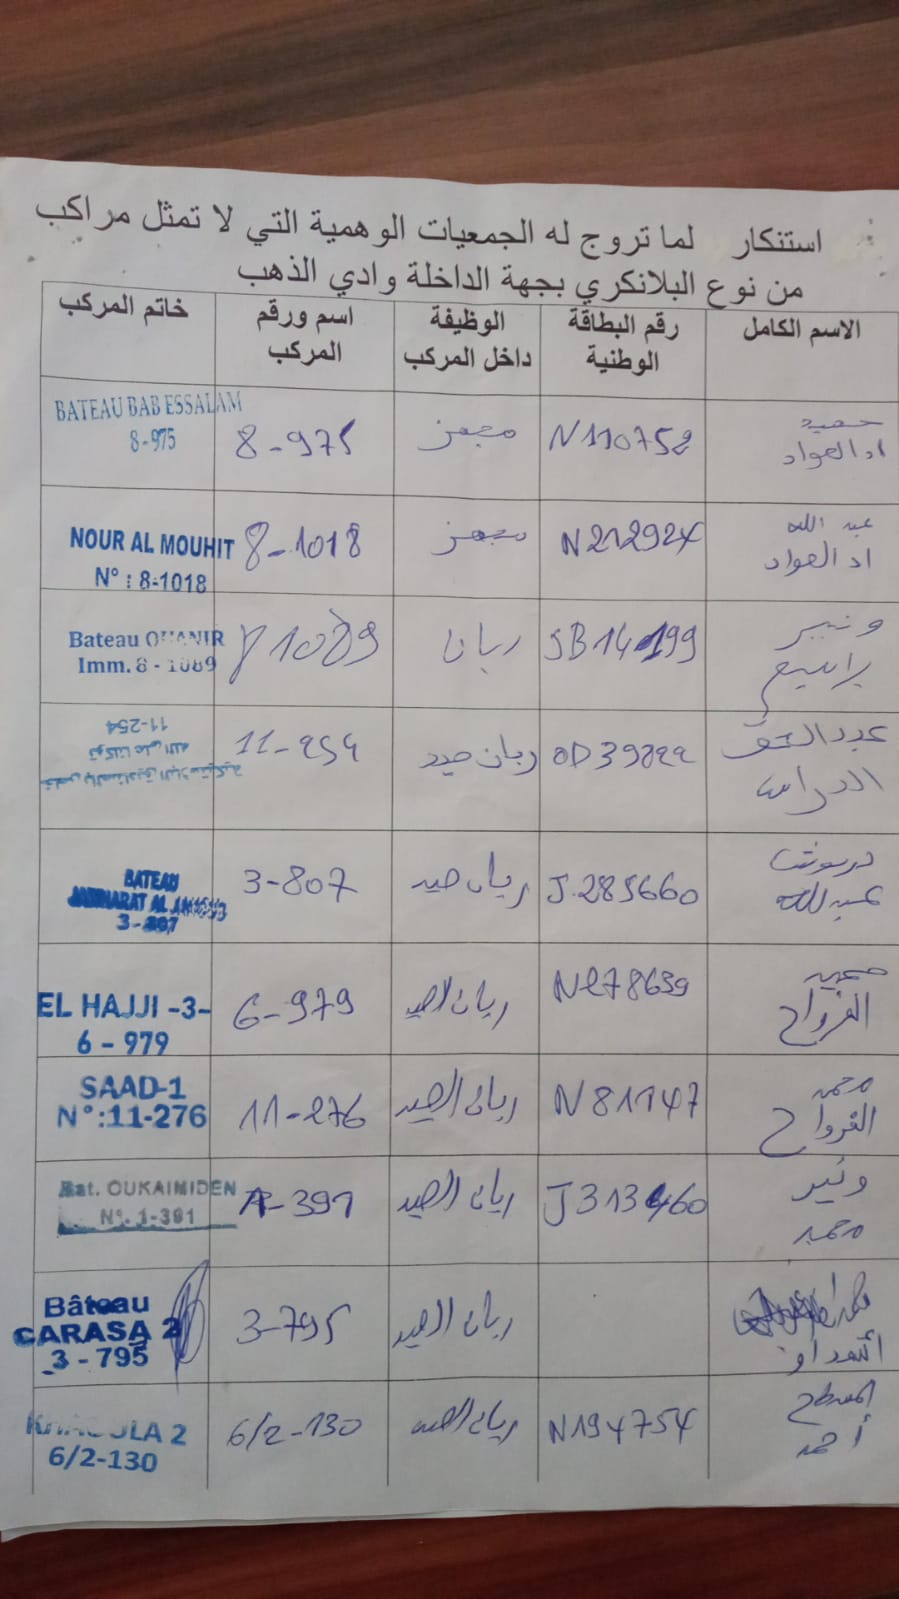 استنكار لما تروج له الجمعيات الوهمية التي لا تمثل مراكب
من نوع البلانكري بجهة الداخلة وادي الذهب
الاسم الكامل
رقم البطاقة
الوطنية
الوظيفة
داخل المركب
اسم ورقم
المركب
خاتم المركب
حميد
اد العواد
N110752
مجهز
8-975
BATEAU BAB ESSALAM
8-975
عبد الله
اد العواد
N212924
مجهز
8-1018
NOUR AL MOUHIT
N° : 8-1018
ونير
JB14199
ربان
81089
Bateau OUANIR
Imm. 8 - 1089
عبد الحق
OD39822
ربان صيد
11-254
11-254
توكلنا على الله
عبد الله
J.285660
ربان صيد
3-807
BATEAU
3-807
سعيد
الفرواح
N278639
ربان الصيد
6-979
EL HAJJI -3-
6 - 979
محمد
الفرواح
N81147
ربان الصيد
11-276
SAAD-1
N°:11-276
ونير
محمد
J313460
ربان الصيد
1-391
Bat. OUKAIMIDEN
N°. 1-391
ربان الصيد
3-795
Bâteau
CARASA 2
3 - 795
المسطح
أحمد
N194754
ربان الصيد
6/2-130
2
6/2-130